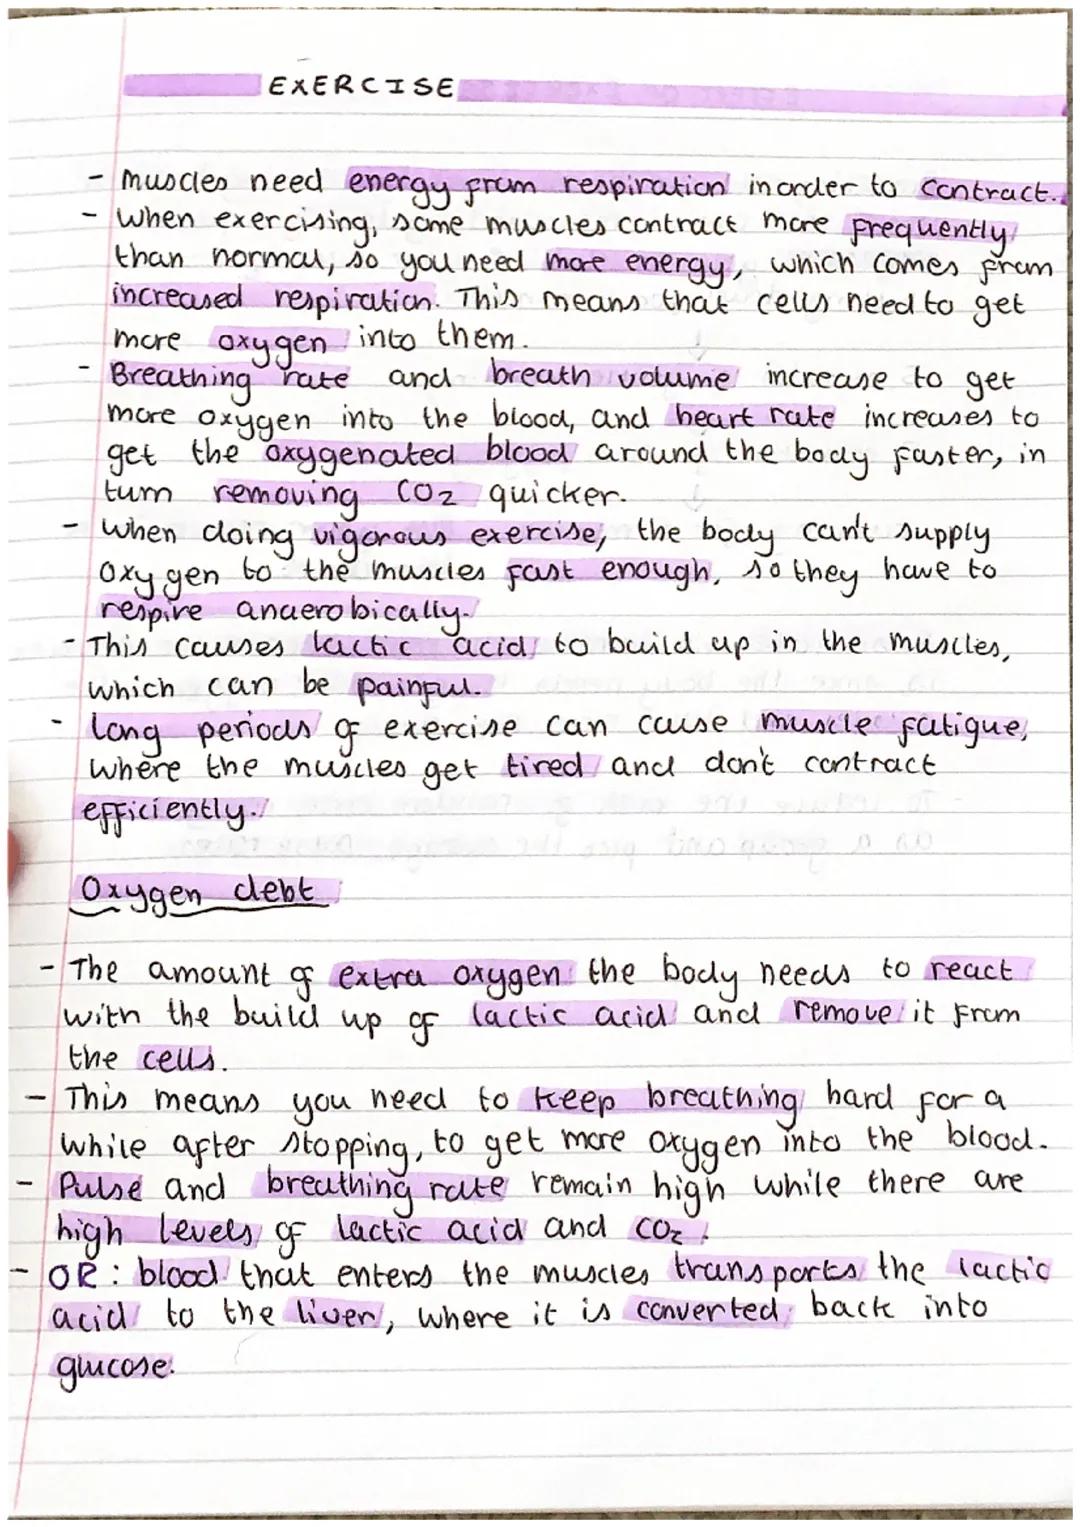 EXERCISE
- muscles need energy from respiration in order to contract.
- when exercising, some muscles contract more frequently
than normal, so you need more energy, which comes from
increased respiration. This means that cells need to get
more oxygen into them.
- Breathing rate and breath volume increase to get
more oxygen into the blood, and heart rate increases to
get the oxygenated blood around the body faster, in
turn removing CO2 quicker.
- when doing vigorous exercise, the body can't supply
oxygen to the muscles fast enough, so they have to
respire anaerobically.
- This causes lactic acid to build up in the muscles,
which can be painful.
- Long periods of exercise can cause muscle fatigue,
where the muscles get tired and don't contract
efficiently.
Oxygen debt
- The amount of extra oxygen the body needs to react
with the build up of lactic acid and remove it from
the cells.
- This means you need to keep breathing hard for a
while after stopping, to get more oxygen into the blood.
- Pulse and breathing rate remain high while there are
high levels of lactic acid and CO2.
- OR: blood that enters the muscles transports the lactic
acid to the liver, where it is converted back into
glucose.